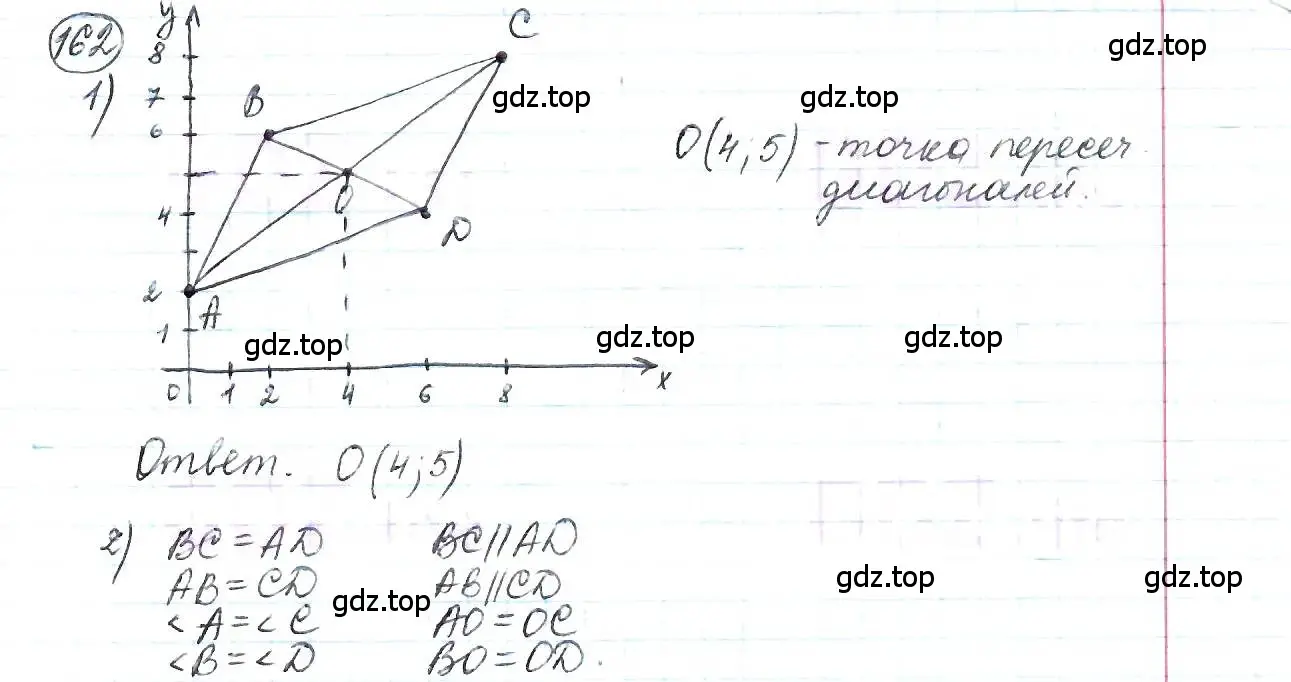 162
1)
y
8
7
6
4
2
1
0 1 2 4 6 8 x
A
B
C
D
O
O(4;5) - точка пересеч.
диагоналей.
Ответ. O(4;5)
2) BC = AD BC || AD
AB = CD AB || CD
< A = < C AO = OC
< B = < D BO = OD.
gdz.top
gdz.top
gdz.top
gdz.top
gdz.top
gdz.top
gdz.top
gdz.top
gdz.top